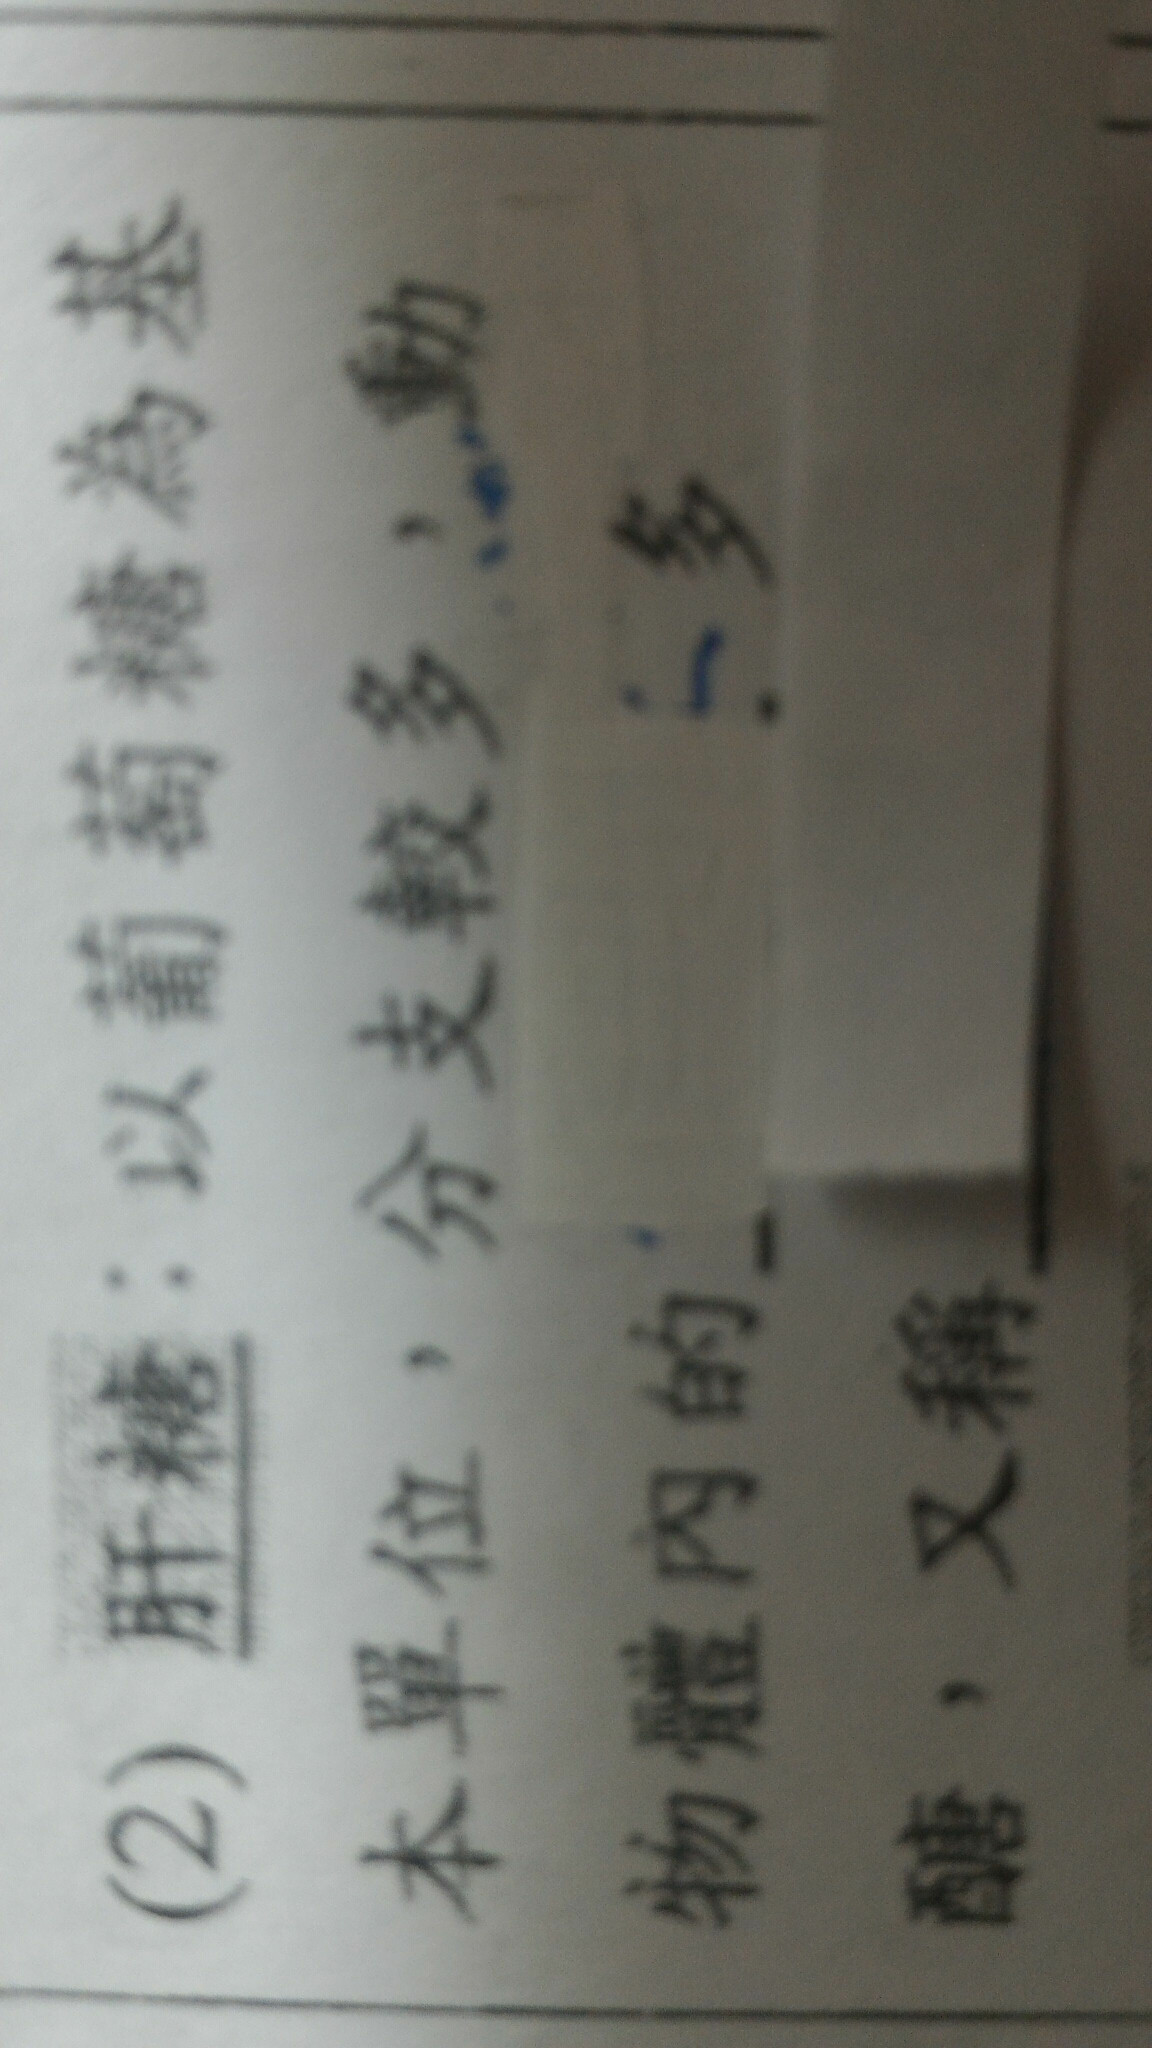 (2) 肝糖：以葡萄糖為基
本單位，分支較多，動
物體內的 多
醣，又稱